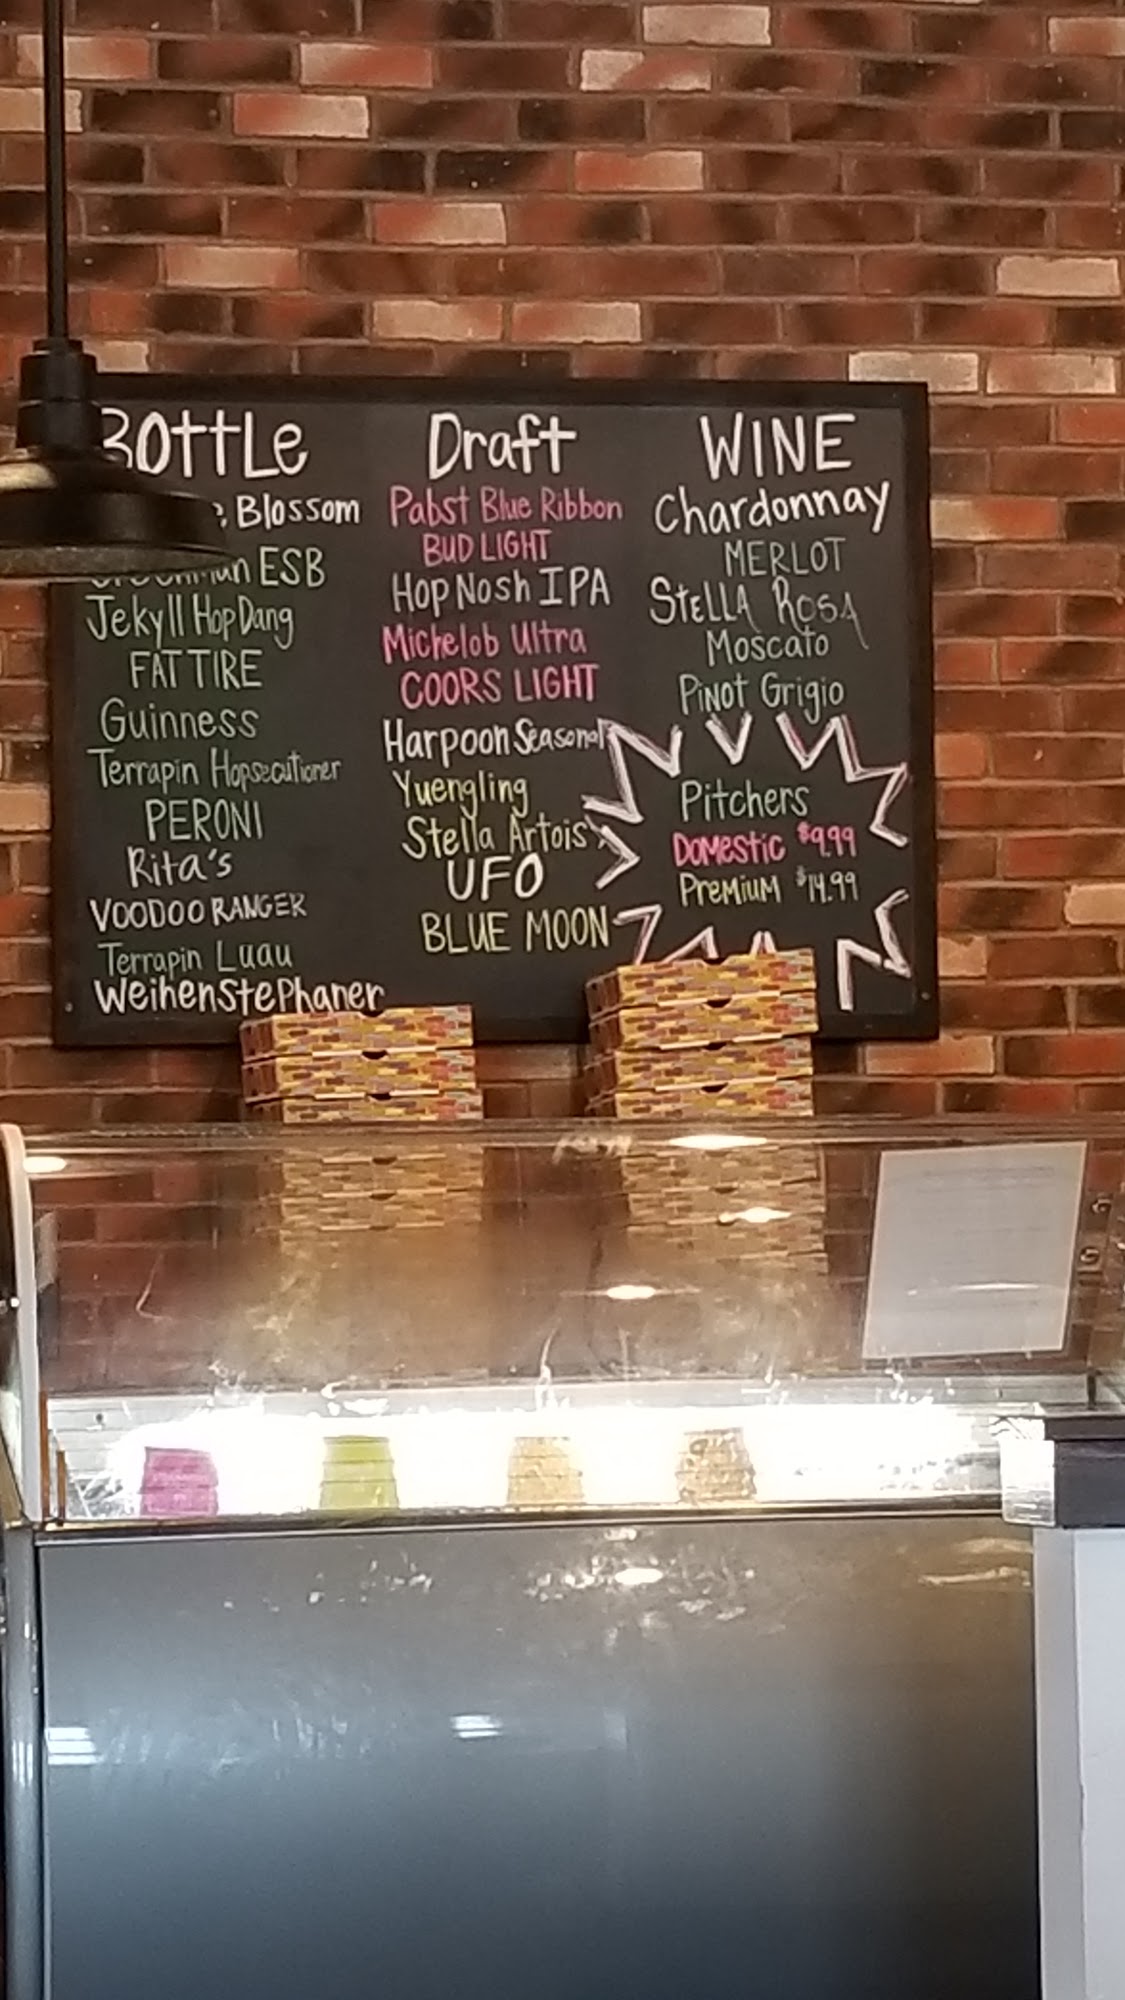 Bottle
Blossom
ESB
Jekyll Hop Dang
FAT TIRE
Guinness
Terrapin Hopsecutioner
PERONI
Rita's
VOODOO RANGER
Terrapin Luau
Weihenstephaner
Draft
Pabst Blue Ribbon
BUD LIGHT
Hop Nosh IPA
Michelob Ultra
COORS LIGHT
Harpoon Seasonal
Yuengling
Stella Artois
UFO
BLUE MOON
WINE
Chardonnay
MERLOT
STELLA ROSA
Moscato
Pinot Grigio
Pitchers
Domestic $9.99
Premium $14.99